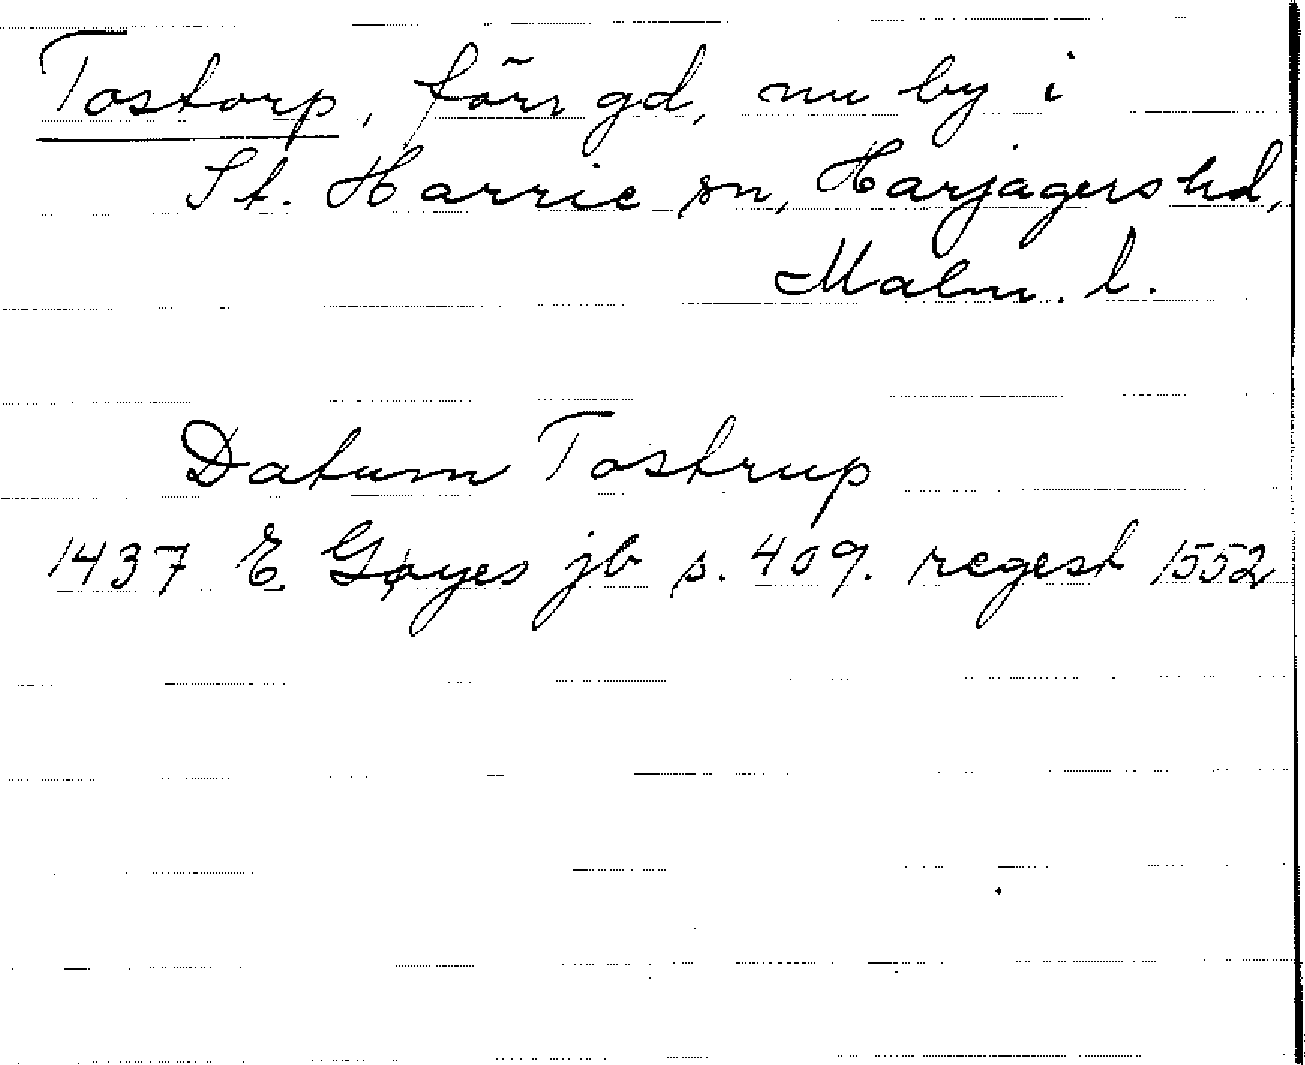 Tostorp, förr gd, nu by i
St. Harrie sn, Harjagers hd,
Malm. l.
Datum Tostrup
1437 E. Gøyes jb s. 409. regest 1552